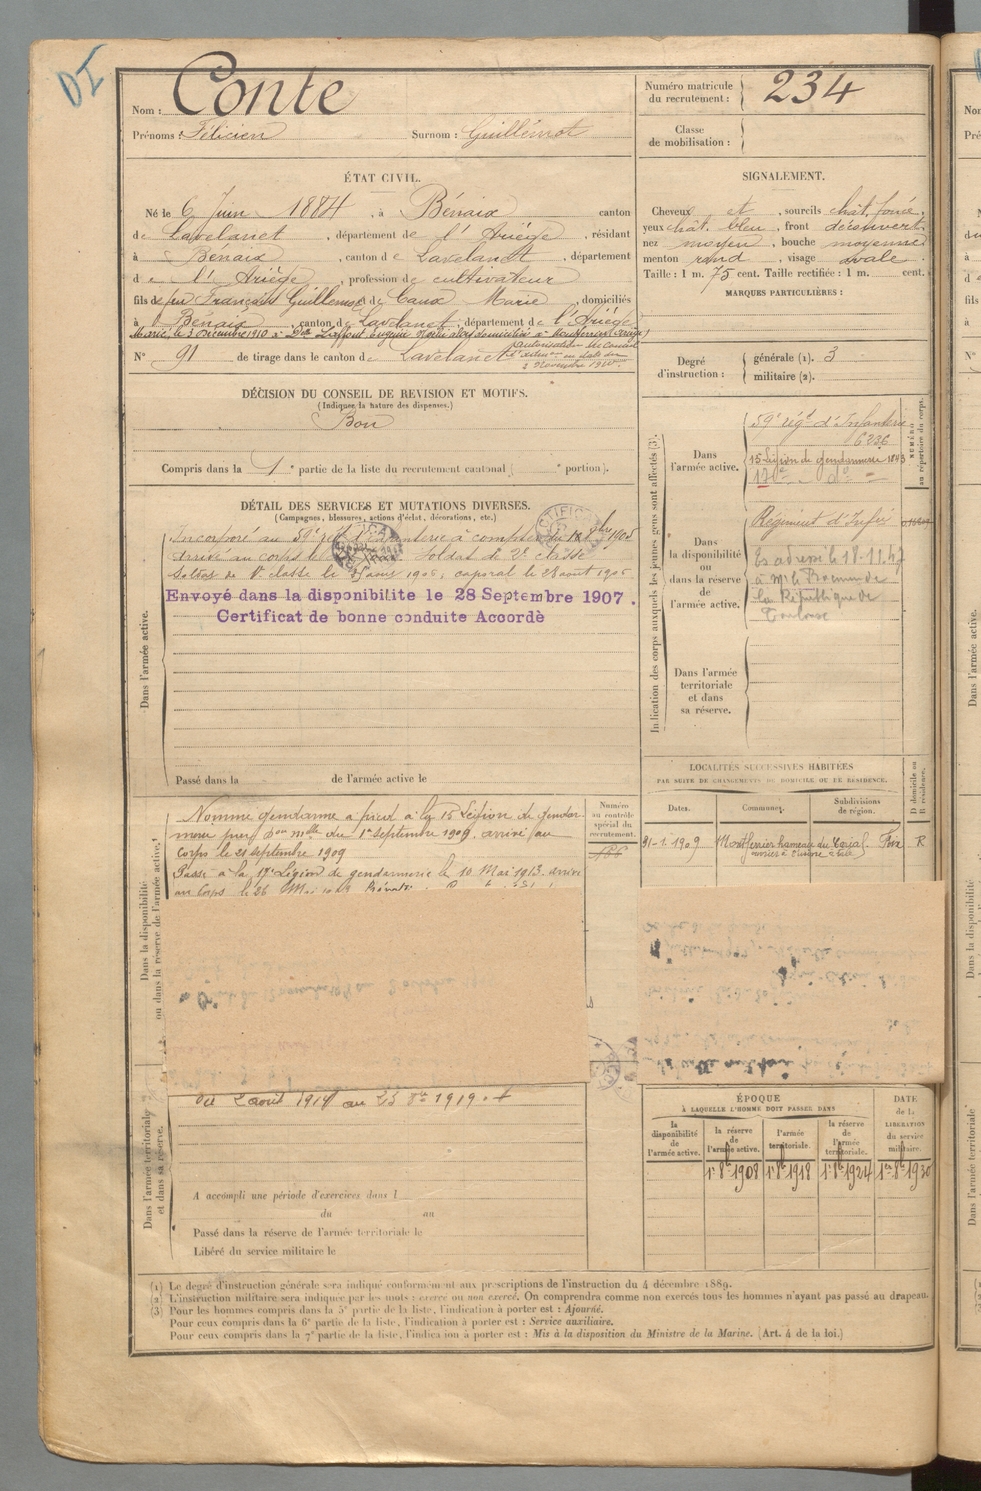 Nom : Conte
Prénoms : Félicien Surnom : Guillémot
Numéro matricule du recrutement : 234
Classe de mobilisation :
ÉTAT CIVIL.
Né le 6 Juin 1884, à Bénaix canton
de Lavelanet, département de l'Ariège, résidant
à Bénaix, canton de Lavelanet, département
de l'Ariège, profession de cultivateur
fils de feu François Guillémot et de Caux Marie, domiciliés
à Bénaix, canton de Lavelanet, département de l'Ariège
Marié le 3 Décembre 1910 à Dlle Laffont
autorisation du Conseil
2 Novembre 1910
N° 91 de tirage dans le canton de Lavelanet
SIGNALEMENT.
Cheveux et, sourcils chât. foncé,
yeux chât. bleu, front découvert
nez moyen, bouche moyenne
menton rond, visage ovale.
Taille : 1 m. 75 cent. Taille rectifiée : 1 m. cent.
MARQUES PARTICULIÈRES :
Degré d'instruction : générale (1). 3
militaire (2).
DÉCISION DU CONSEIL DE REVISION ET MOTIFS.
(Indiquer la nature des dispenses.)
Bon
Compris dans la 1e partie de la liste du recrutement cantonal ( e portion).
DÉTAIL DES SERVICES ET MUTATIONS DIVERSES.
(Campagnes, blessures, actions d'éclat, décorations, etc.)
Dans l'armée active.
Incorporé au 59e rég d'infanterie à compter du 1905
Arrivé au corps le Soldat de 2e classe
Soldat de 1e classe le avril 1906, caporal le 28 août 1906
Envoyé dans la disponibilite le 28 Septembre 1907.
Certificat de bonne conduite Accordè
Passé dans la de l'armée active le
Indication des corps auxquels les jeunes gens sont affectés (3).
Dans l'armée active.
59e régt d'Infanterie
6236
15 Légion de Gendarmerie 1843
17e - do -
NUMÉRO au répertoire du corps.
Dans la disponibilité ou dans la réserve de l'armée active.
Régiment d'Infie
Ex adressé le 18-11-47
à Mr le
la République de
Toulouse
Dans l'armée territoriale et dans sa réserve.
LOCALITÉS SUCCESSIVES HABITÉES
PAR SUITE DE CHANGEMENTS DE DOMICILE OU DE RÉSIDENCE.
Dates. Communes. Subdivisions de région. D domicile ou R résidence.
31-1-1909 Montferrier hameau du Foix R
Dans la disponibilité ou dans la réserve de l'armée active.
Nommé gendarme à pied à la 15 Légion de gendar-
merie par don mlle du 1er septembre 1909. arrivé au
corps le 21 septembre 1909
Passé à la 17e Légion de gendarmerie le 10 Mai 1913. arrivé
au Corps le 26 Mai 1913
Numéro au contrôle spécial du recrutement.
Dans l'armée territoriale et dans sa réserve.
du 2 août 1914 au 23 1919.
A accompli une période d'exercices dans l
du au
Passé dans la réserve de l'armée territoriale le
Libéré du service militaire le
ÉPOQUE
À LAQUELLE L'HOMME DOIT PASSER DANS
la disponibilité de l'armée active. la réserve de l'armée active. l'armée territoriale. la réserve de l'armée territoriale.
DATE de la LIBÉRATION du service militaire.
1r 8bre 1908 1r 8bre 1918 1r 8bre 1924 1er 8bre 1930
(1) Le degré d'instruction générale sera indiqué conformément aux prescriptions de l'instruction du 4 décembre 1889.
(2) L'instruction militaire sera indiquée par les mots : exercé ou non exercé. On comprendra comme non exercés tous les hommes n'ayant pas passé au drapeau.
(3) Pour les hommes compris dans la 5e partie de la liste, l'indication à porter est : Ajourné.
Pour ceux compris dans la 6e partie de la liste, l'indication à porter est : Service auxiliaire.
Pour ceux compris dans la 7e partie de la liste, l'indication à porter est : Mis à la disposition du Ministre de la Marine. (Art. 4 de la loi.)